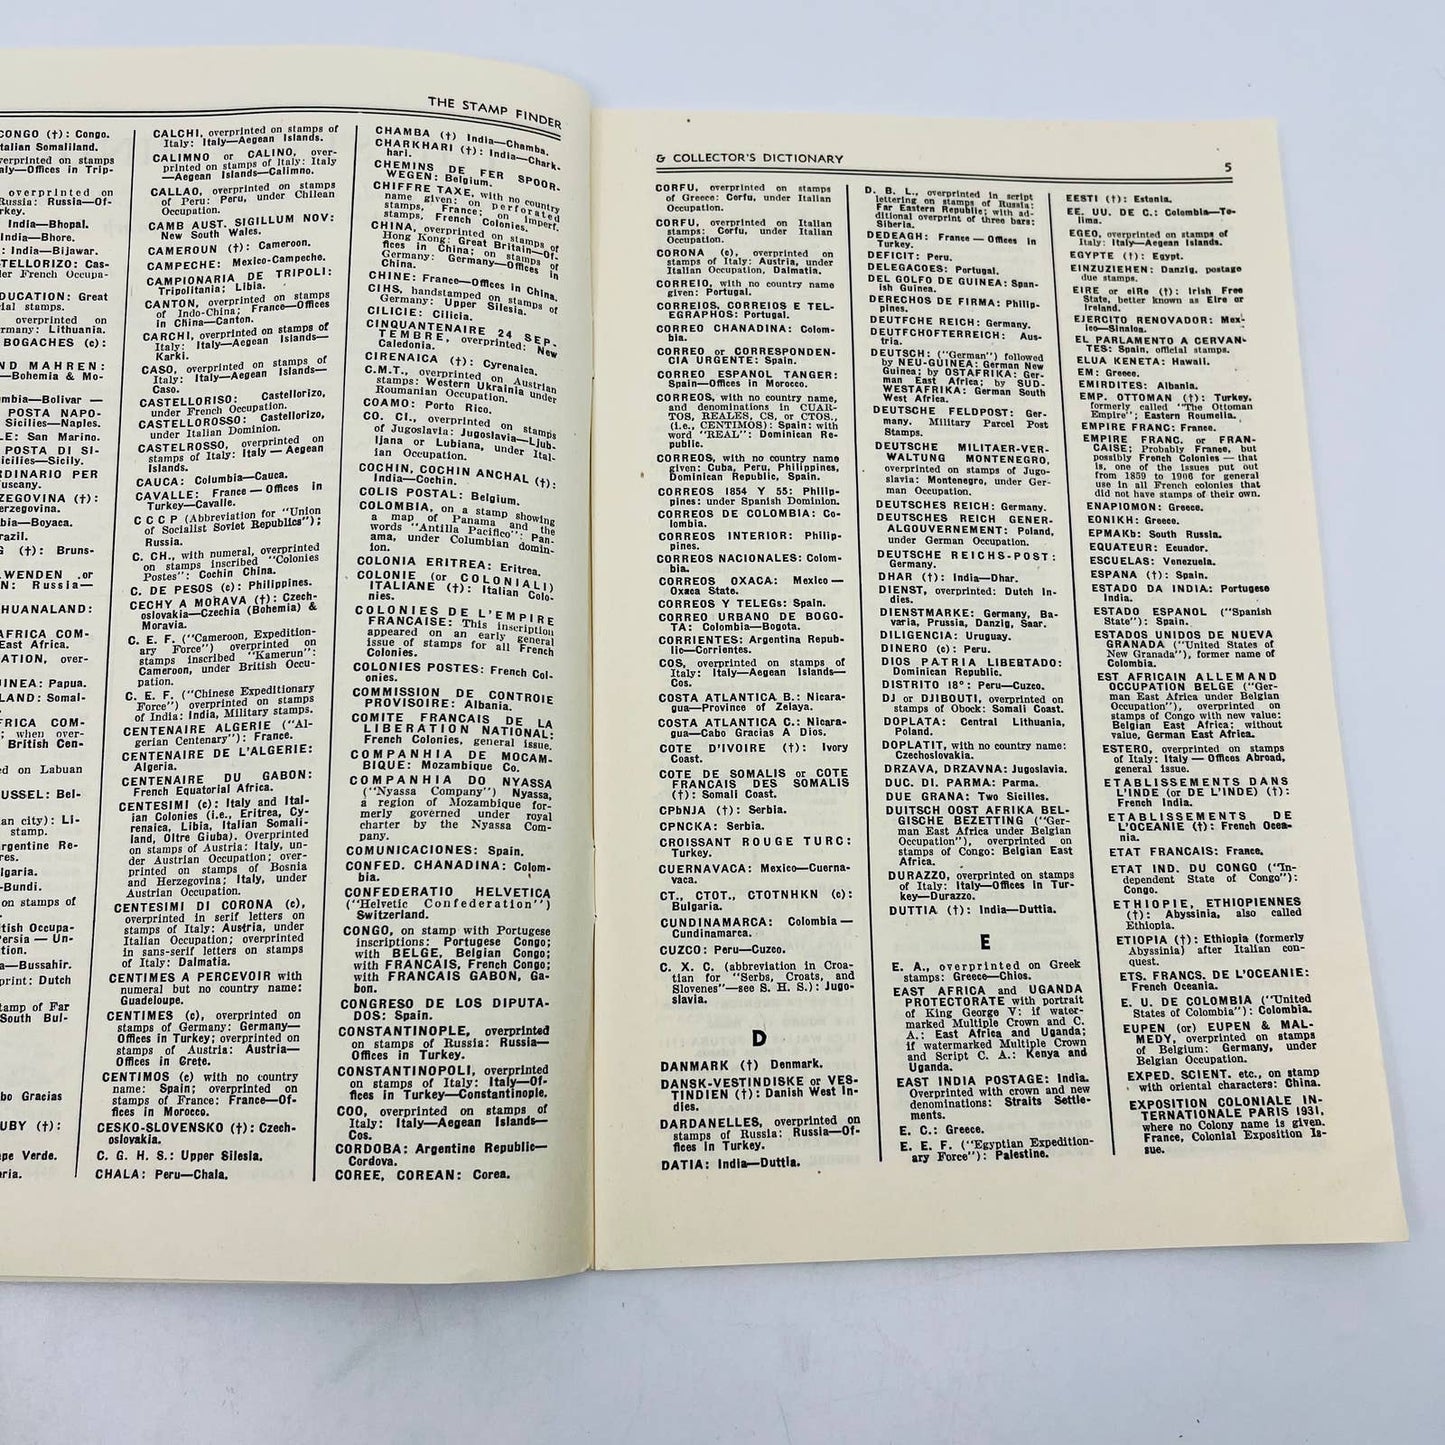 THE STAMP FINDER
CONGO (†): Congo.
talian Somaliland.
verprinted on stamps
aly—Offices in Trip-
overprinted on
Russia: Russia—Of-
rkey.
India—Bhopal.
India—Bhore.
: India—Bijawar.
STELLORIZO: Cas-
der French Occupa-
DUCATION: Great
ial stamps.
overprinted on
rmany: Lithuania.
BOGACHES (c):
ND MAHREN:
—Bohemia & Mo-
mbia—Bolivar —
POSTA NAPO-
Sicilies—Naples.
LE: San Marino.
POSTA DI SI-
icilies—Sicily.
RDINARIO PER
uscany.
ZEGOVINA (†):
erzegovina.
bia—Boyaca.
razil.
G (†): Bruns-
LWENDEN or
N: Russia—
HUANALAND:
AFRICA COM-
East Africa.
ATION, over-
UINEA: Papua.
LAND: Somal-
FRICA COM-
; when over-
British Cen-
ed on Labuan
RUSSEL: Bel-
an city): Li-
stamp.
rgentine Re-
res.
lgaria.
—Bundi.
on stamps of
itish Occupa-
ersia — Un-
tion.
a—Bussahir.
print: Dutch
tamp of Far
South Bul-
bo Gracias
UBY (†):
pe Verde.
aria.
CALCHI, overprinted on stamps of
Italy: Italy—Aegean Islands.
CALIMNO or CALINO, over-
printed on stamps of Italy: Italy
—Aegean Islands—Calimno.
CALLAO, overprinted on stamps
of Peru: Peru, under Chilean
Occupation.
CAMB AUST. SIGILLUM NOV:
New South Wales.
CAMEROUN (†): Cameroon.
CAMPECHE: Mexico-Campeche.
CAMPIONARIA DE TRIPOLI:
Tripolitania: Libia.
CANTON, overprinted on stamps
of Indo-China: France—Offices
in China—Canton.
CARCHI, overprinted on stamps of
Italy: Italy—Aegean Islands—
Karki.
CASO, overprinted on stamps of
Italy: Italy—Aegean Islands—
Caso.
CASTELLORISO: Castellorizo,
under French Occupation.
CASTELLOROSSO: Castellorizo,
under Italian Dominion.
CASTELROSSO, overprinted on
stamps of Italy: Italy — Aegean
Islands.
CAUCA: Columbia—Cauca.
CAVALLE: France — Offices in
Turkey—Cavalle.
C C C P (Abbreviation for "Union
of Socialist Soviet Republics");
Russia.
C. CH., with numeral, overprinted
on stamps inscribed "Colonies
Postes": Cochin China.
C. DE PESOS (c): Philippines.
CECHY A MORAVA (†): Czech-
oslovakia—Czechia (Bohemia) &
Moravia.
C. E. F. ("Cameroon, Expedition-
ary Force") overprinted on
stamps inscribed "Kamerun":
Cameroon, under British Occu-
pation.
C. E. F. ("Chinese Expeditionary
Force") overprinted on stamps
of India: India, Military stamps.
CENTENAIRE ALGERIE ("Al-
gerian Centenary"): France.
CENTENAIRE DE L'ALGERIE:
Algeria.
CENTENAIRE DU GABON:
French Equatorial Africa.
CENTESIMI (c): Italy and Ital-
ian Colonies (i.e., Eritrea, Cy-
renaica, Libia, Italian Somali-
land, Oltre Giuba). Overprinted
on stamps of Austria: Italy, un-
der Austrian Occupation; over-
printed on stamps of Bosnia
and Herzegovina; Italy, under
Austrian Occupation.
CENTESIMI DI CORONA (c),
overprinted in serif letters on
stamps of Italy: Austria, under
Italian Occupation; overprinted
in sans-serif letters on stamps
of Italy: Dalmatia.
CENTIMES A PERCEVOIR with
numeral but no country name:
Guadeloupe.
CENTIMES (c), overprinted on
stamps of Germany: Germany—
Offices in Turkey; overprinted on
stamps of Austria: Austria—
Offices in Crete.
CENTIMOS (c) with no country
name: Spain; overprinted on
stamps of France: France—Of-
fices in Morocco.
CESKO-SLOVENSKO (†): Czech-
oslovakia.
C. G. H. S.: Upper Silesia.
CHALA: Peru—Chala.
CHAMBA (†) India—Chamba.
CHARKHARI (†): India—Chark-
hari.
CHEMINS DE FER SPOOR-
WEGEN: Belgium.
CHIFFRE TAXE, with no country
name given: on perforated
stamps, France; on imperf.
stamps, French Colonies.
CHINA, overprinted on stamps of
Hong Kong: Great Britain—Of-
fices in China; on stamps of
Germany: Germany—Offices in
China.
CHINE: France—Offices in China.
CIHS, handstamped on stamps of
Germany: Upper Silesia.
CILICIE: Cilicia.
CINQUANTENAIRE 24 SEP-
TEMBRE, overprinted: New
Caledonia.
CIRENAICA (†): Cyrenaica.
C.M.T., overprinted on Austrian
stamps: Western Ukrainia under
Roumanian Occupation.
COAMO: Porto Rico.
CO. CI., overprinted on stamps
of Jugoslavia: Jugoslavia—Ljub-
ljana or Lubiana, under Ital-
ian Occupation.
COCHIN, COCHIN ANCHAL (†):
India—Cochin.
COLIS POSTAL: Belgium.
COLOMBIA, on a stamp showing
a map of Panama and the
words "Antilla Pacifico": Pan-
ama, under Columbian domin-
ion.
COLONIA ERITREA: Eritrea.
COLONIE (or COLONIALI)
ITALIANE (†): Italian Colo-
nies.
COLONIES DE L'EMPIRE
FRANCAISE: This inscription
appeared on an early general
issue of stamps for all French
Colonies.
COLONIES POSTES: French Col-
onies.
COMMISSION DE CONTROIE
PROVISOIRE: Albania.
COMITE FRANCAIS DE LA
LIBERATION NATIONAL:
French Colonies, general issue.
COMPANHIA DE MOCAM-
BIQUE: Mozambique Co.
COMPANHIA DO NYASSA
("Nyassa Company") Nyassa,
a region of Mozambique for-
merly governed under royal
charter by the Nyassa Com-
pany.
COMUNICACIONES: Spain.
CONFED. CHANADINA: Colom-
bia.
CONFEDERATIO HELVETICA
("Helvetic Confederation")
Switzerland.
CONGO, on stamp with Portugese
inscriptions: Portugese Congo;
with BELGE, Belgian Congo;
with FRANCAIS, French Congo;
with FRANCAIS GABON, Ga-
bon.
CONGRESO DE LOS DIPUTA-
DOS: Spain.
CONSTANTINOPLE, overprinted
on stamps of Russia: Russia—
Offices in Turkey.
CONSTANTINOPOLI, overprinted
on stamps of Italy: Italy—Of-
fices in Turkey—Constantinople.
COO, overprinted on stamps of
Italy: Italy—Aegean Islands—
Cos.
CORDOBA: Argentine Republic—
Cordova.
COREE, COREAN: Corea.
& COLLECTOR'S DICTIONARY 5
CORFU, overprinted on stamps
of Greece: Corfu, under Italian
Occupation.
CORFU, overprinted on Italian
stamps: Corfu, under Italian
Occupation.
CORONA (c), overprinted on
stamps of Italy: Austria, under
Italian Occupation, Dalmatia.
CORREIO, with no country name
given: Portugal.
CORREIOS, CORREIOS E TEL-
EGRAPHOS: Portugal.
CORREO CHANADINA: Colom-
bia.
CORREO or CORRESPONDEN-
CIA URGENTE: Spain.
CORREO ESPANOL TANGER:
Spain—Offices in Morocco.
CORREOS, with no country name,
and denominations in CUAR-
TOS, REALES, CS, or CTOS.,
(i.e., CENTIMOS): Spain: with
word "REAL": Dominican Re-
public.
CORREOS, with no country name
given: Cuba, Peru, Philippines,
Dominican Republic, Spain.
CORREOS 1854 Y 55: Philip-
pines: under Spanish Dominion.
CORREOS DE COLOMBIA: Co-
lombia.
CORREOS INTERIOR: Philip-
pines.
CORREOS NACIONALES: Colom-
bia.
CORREOS OXACA: Mexico —
Oxaca State.
CORREOS Y TELEGs: Spain.
CORREO URBANO DE BOGO-
TA: Colombia—Bogota.
CORRIENTES: Argentina Repub-
lic—Corrientes.
COS, overprinted on stamps of
Italy: Italy—Aegean Islands—
Cos.
COSTA ATLANTICA B.: Nicara-
gua—Province of Zelaya.
COSTA ATLANTICA C.: Nicara-
gua—Cabo Gracias A Dios.
COTE D'IVOIRE (†): Ivory
Coast.
COTE DE SOMALIS or COTE
FRANCAIS DES SOMALIS
(†): Somali Coast.
CPbNJA (†): Serbia.
CPNCKA: Serbia.
CROISSANT ROUGE TURC:
Turkey.
CUERNAVACA: Mexico—Cuerna-
vaca.
CT., CTOT., CTOTNHKN (c):
Bulgaria.
CUNDINAMARCA: Colombia —
Cundinamarca.
CUZCO: Peru—Cuzco.
C. X. C. (abbreviation in Croa-
tian for "Serbs, Croats, and
Slovenes"—see S. H. S.): Jugo-
slavia.
D
DANMARK (†) Denmark.
DANSK-VESTINDISKE or VES-
TINDIEN (†): Danish West In-
dies.
DARDANELLES, overprinted on
stamps of Russia: Russia—Of-
fices in Turkey.
DATIA: India—Duttia.
D. B. L., overprinted in script
lettering on stamps of Russia:
Far Eastern Republic; with ad-
ditional overprint of three bars:
Siberia.
DEDEAGH: France — Offices in
Turkey.
DEFICIT: Peru.
DELEGACOES: Portugal.
DEL GOLFO DE GUINEA: Span-
ish Guinea.
DERECHOS DE FIRMA: Philip-
pines.
DEUTFCHE REICH: Germany.
DEUTFCHOFTERREICH: Aus-
tria.
DEUTSCH: ("German") followed
by NEU-GUINEA: German New
Guinea; by OSTAFRIKA: Ger-
man East Africa; by SUD-
WESTAFRIKA: German South
West Africa.
DEUTSCHE FELDPOST: Ger-
many. Military Parcel Post
Stamps.
DEUTSCHE MILITAER-VER-
WALTUNG MONTENEGRO,
overprinted on stamps of Jugo-
slavia: Montenegro, under Ger-
man Occupation.
DEUTSCHES REICH: Germany.
DEUTSCHES REICH GENER-
ALGOUVERNEMENT: Poland,
under German Occupation.
DEUTSCHE REICHS-POST:
Germany.
DHAR (†): India—Dhar.
DIENST, overprinted: Dutch In-
dies.
DIENSTMARKE: Germany, Ba-
varia, Prussia, Danzig, Saar.
DILIGENCIA: Uruguay.
DINERO (c): Peru.
DIOS PATRIA LIBERTADO:
Dominican Republic.
DISTRITO 18°: Peru—Cuzco.
DJ or DJIBOUTI, overprinted on
stamps of Obock: Somali Coast.
DOPLATA: Central Lithuania,
Poland.
DOPLATIT, with no country name:
Czechoslovakia.
DRZAVA, DRZAVNA: Jugoslavia.
DUC. DI. PARMA: Parma.
DUE GRANA: Two Sicilies.
DUITSCH OOST AFRIKA BEL-
GISCHE BEZETTING ("Ger-
man East Africa under Belgian
Occupation"), overprinted on
stamps of Congo: Belgian East
Africa.
DURAZZO, overprinted on stamps
of Italy: Italy—Offices in Tur-
key—Durazzo.
DUTTIA (†): India—Duttia.
E
E. A., overprinted on Greek
stamps: Greece—Chios.
EAST AFRICA and UGANDA
PROTECTORATE with portrait
of King George V: if water-
marked Multiple Crown and C.
A.: East Africa and Uganda;
if watermarked Multiple Crown
and Script C. A.: Kenya and
Uganda.
EAST INDIA POSTAGE: India.
Overprinted with crown and new
denominations: Straits Settle-
ments.
E. C.: Greece.
E. E. F. ("Egyptian Expedition-
ary Force"): Palestine.
EESTI (†): Estonia.
EE. UU. DE C.: Colombia—To-
lima.
EGEO, overprinted on stamps of
Italy: Italy—Aegean Islands.
EGYPTE (†): Egypt.
EINZUZIEHEN: Danzig, postage
due stamps.
EIRE or eIRe (†): Irish Free
State, better known as Eire or
Ireland.
EJERCITO RENOVADOR: Mex-
ico—Sinaloa.
EL PARLAMENTO A CERVAN-
TES: Spain, official stamps.
ELUA KENETA: Hawaii.
EM: Greece.
EMIRDITES: Albania.
EMP. OTTOMAN (†): Turkey,
formerly called "The Ottoman
Empire"; Eastern Roumelia.
EMPIRE FRANC: France.
EMPIRE FRANC. or FRAN-
CAISE: Probably France, but
possibly French Colonies — that
is, one of the issues put out
from 1859 to 1906 for general
use in all French colonies that
did not have stamps of their own.
ENAPIOMON: Greece.
EONIKH: Greece.
EPMAKb: South Russia.
EQUATEUR: Ecuador.
ESCUELAS: Venezuela.
ESPANA (†): Spain.
ESTADO DA INDIA: Portugese
India.
ESTADO ESPANOL ("Spanish
State"): Spain.
ESTADOS UNIDOS DE NUEVA
GRANADA ("United States of
New Granada"), former name of
Colombia.
EST AFRICAIN ALLEMAND
OCCUPATION BELGE ("Ger-
man East Africa under Belgian
Occupation"), overprinted on
stamps of Congo with new value:
Belgian East Africa; without
value, German East Africa.
ESTERO, overprinted on stamps
of Italy: Italy — Offices Abroad,
general issue.
ETABLISSEMENTS DANS
L'INDE (or DE L'INDE) (†):
French India.
ETABLISSEMENTS DE
L'OCEANIE (†): French Ocea-
nia.
ETAT FRANCAIS: France.
ETAT IND. DU CONGO ("In-
dependent State of Congo"):
Congo.
ETHIOPIE, ETHIOPIENNES
(†): Abyssinia, also called
Ethiopia.
ETIOPIA (†): Ethiopia (formerly
Abyssinia) after Italian con-
quest.
ETS. FRANCS. DE L'OCEANIE:
French Oceania.
E. U. DE COLOMBIA ("United
States of Colombia"): Colombia.
EUPEN (or) EUPEN & MAL-
MEDY, overprinted on stamps
of Belgium: Germany, under
Belgian Occupation.
EXPED. SCIENT. etc., on stamp
with oriental characters: China.
EXPOSITION COLONIALE IN-
TERNATIONALE PARIS 1931,
where no Colony name is given.
France, Colonial Exposition Is-
sue.